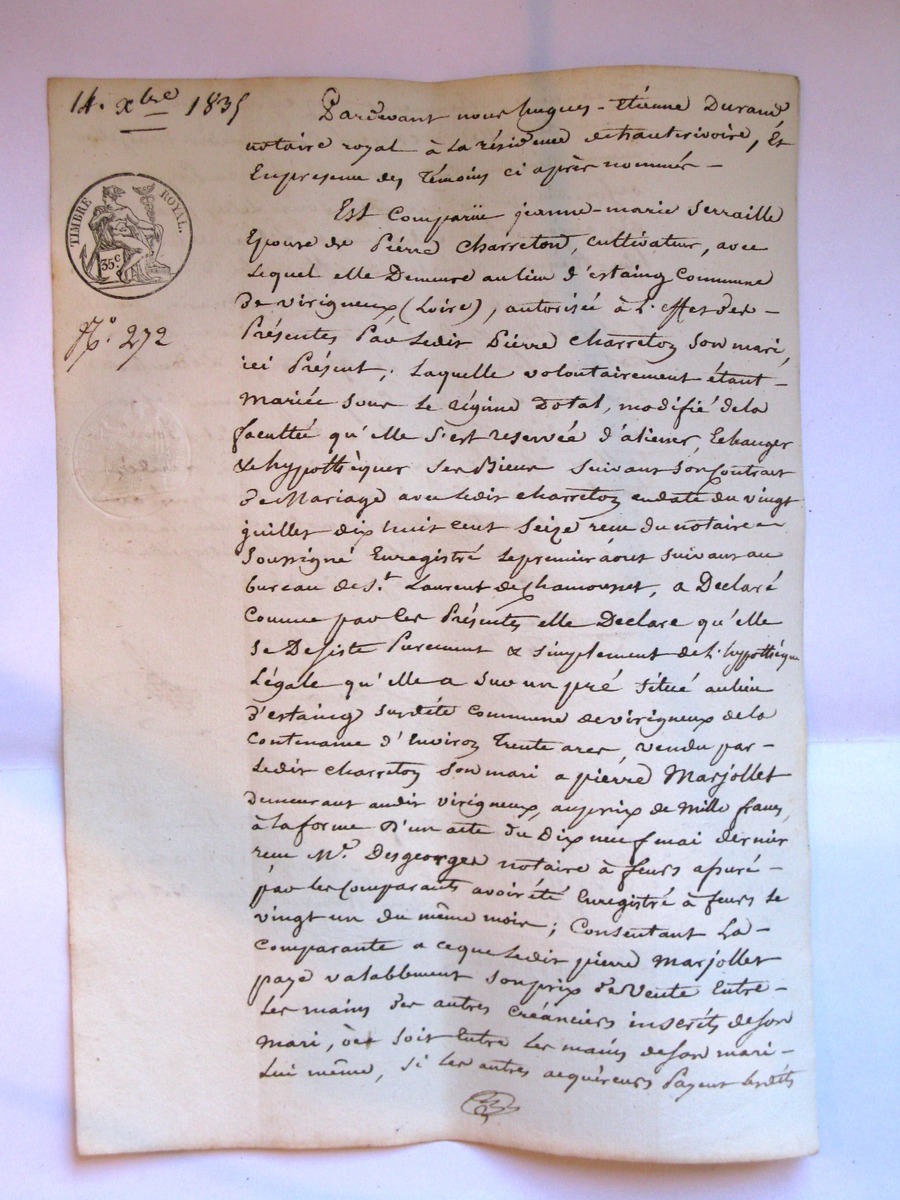 14. xbre 1835
TIMBRE ROYAL.
35c
No. 272
Pardevant nous hugues-étienne Durand
notaire royal à la résidence de hauterivoire, Et
Enpresence des Témoins ci après nommés –
Est Comparüe jeanne-marie Serraille
Epouse de Piérre Charreton, cultivateur, avec
Lequel elle Demeure au lieu d'estaing Commune
De virigneux, (Loire), autorisée à L'effet des –
Présentes Par Ledit Piérre Charreton Son mari,
ici Présent; Laquelle volontairement étant –
Mariée Sous Le régime Dotal, modifié de la
faculté qu'elle S'est reservée d'aliener, Echanger
& hypothèquer Ses Biens Suivant Son Contrat
De Mariage avec Ledit Charreton en date du vingt
juillet dix huit cent Seize reçu du notaire
Soussigné Enregistré Le premier août Suivant au
bureau de St. Laurent de Chamousset, a Declaré
Comme par les Présentes elle Declare qu'elle
Se Desiste Purement & Simplement de L'hypothèque
Légale qu'elle a Sur un pré Situé au lieu
D'estaing Susdite Commune de virigneux de la
Contenance d'Environ Trente ares, vendu par –
Ledit Charreton Son mari a piérre Marjollet
Demeurant audit virigneux, au prix de Mille francs,
à la forme D'un acte du Dix neuf mai dernier
reçu Me. Desgeorges notaire à feurs assuré –
par les Comparants avoir été Enregistré à feurs le
vingt un du même mois; Consentant La –
Comparante a ceque Ledit pierre Marjollet
paye valablement Son prix de Vente Entre –
Les mains des autres Créanciers inscrits de Son
Mari, Soit Entre Les mains de Son mari –
Lui même, Si Les autres acquéreurs Payent lesdits